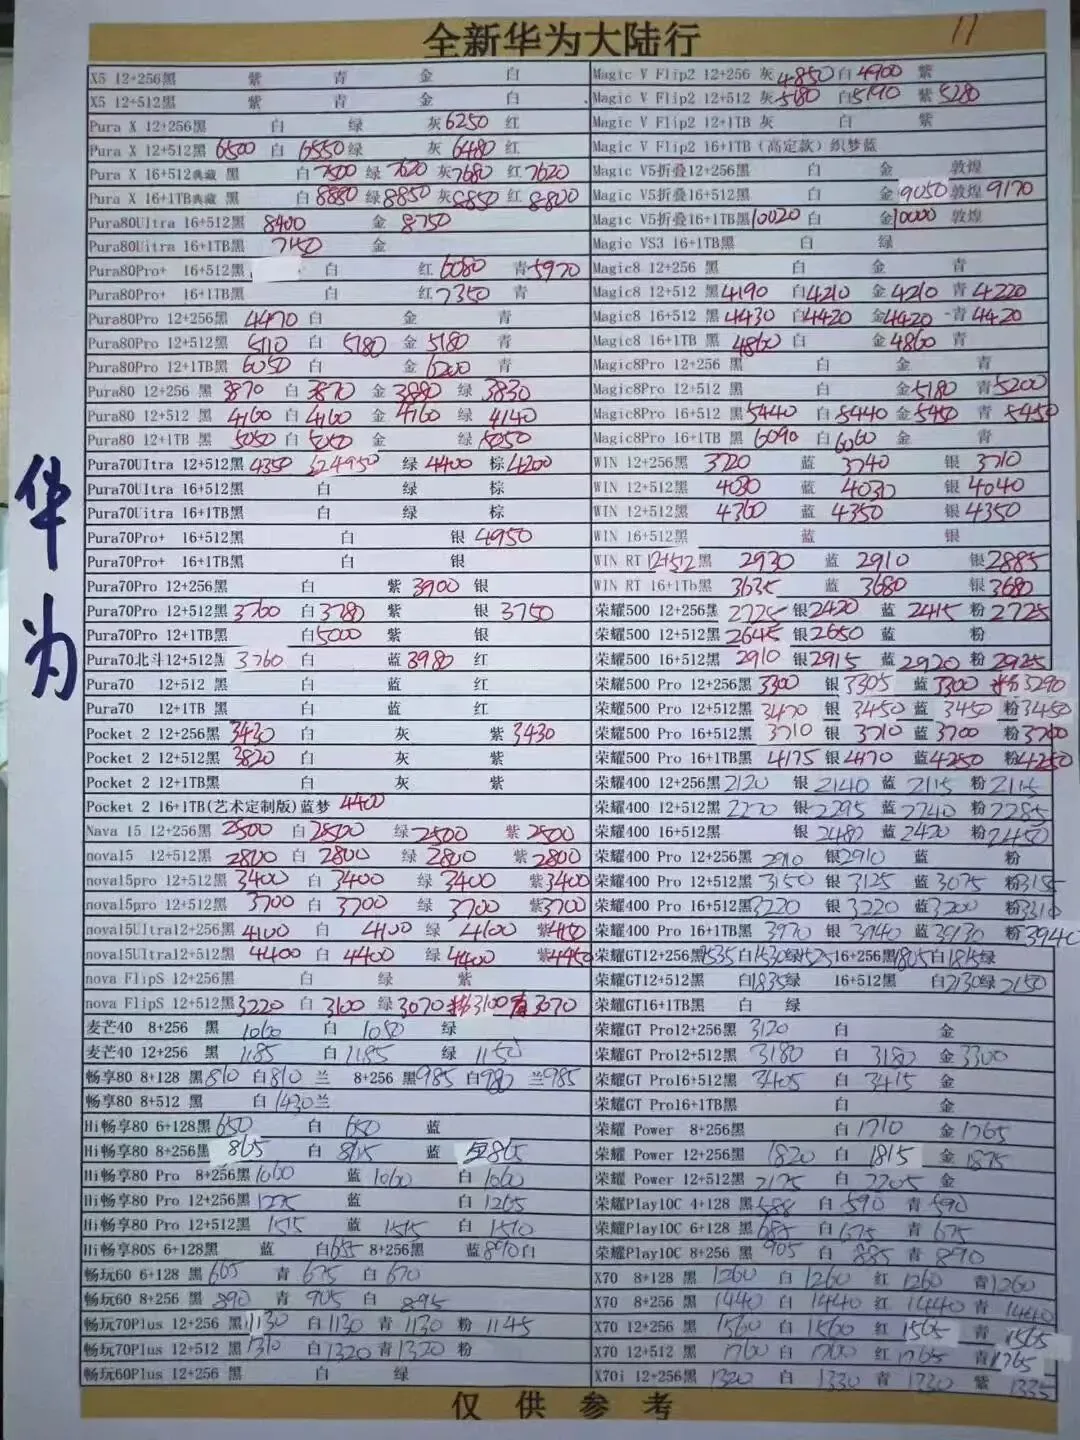 全新华为大陆行
11
华为
X5 12+256黑 紫 青 金 白
X5 12+512黑 紫 青 金 白
Pura X 12+256黑 白 绿 灰6250 红
Pura X 12+512黑 6500 白 6550 绿 灰 6480 红
Pura X 16+512典藏 黑 白7500 绿 7620 灰7680 红7620
Pura X 16+1TB典藏 黑 白8880 绿8850 灰8850 红 8800
Pura80Ultra 16+512黑 8400 金 8750
Pura80Uitra 16+1TB黑 金
Pura80Pro+ 16+512黑 白 红 6080 青5970
Pura80Pro+ 16+1TB黑 白 红7350 青
Pura80Pro 12+256黑 4470 白 金 青
Pura80Pro 12+512黑 5110 白 5180 金 5180 青
Pura80Pro 12+1TB黑 6050 白 金 6200 青
Pura80 12+256 黑 3870 白 3870 金 3880 绿 3830
Pura80 12+512 黑 4160 白 4160 金 4160 绿 4140
Pura80 12+1TB 黑 5050 白 5050 金 绿 5050
Pura70UItra 12+512黑 4350 4950 绿 4400 棕 4200
Pura70UItra 16+512黑 白 绿 棕
Pura70Uitra 16+1TB黑 白 绿 棕
Pura70Pro+ 16+512黑 白 银 4950
Pura70Pro+ 16+1TB黑 白 银
Pura70Pro 12+256黑 白 紫 3900 银
Pura70Pro 12+512黑 3760 白3780 紫 银 3750
Pura70Pro 12+1TB黑 白5000 紫 银
Pura70北斗12+512黑 3760 白 蓝 3980 红
Pura70 12+512 黑 白 蓝 红
Pura70 12+1TB 黑 白 蓝 红
Pocket 2 12+256黑 3430 白 灰 紫 3430
Pocket 2 12+512黑 3820 白 灰 紫
Pocket 2 12+1TB黑 白 灰 紫
Pocket 2 16+1TB(艺术定制版)蓝梦 4400
Nava 15 12+256黑 2500 白 2500 绿 2500 紫 2500
nova15 12+512黑 2800 白 2800 绿 2800 紫 2800
nova15pro 12+512黑 3400 白 3400 绿 3400 紫3400
nova15pro 12+512黑 3700 白 3700 绿 3700 紫3700
nova15UItra12+256黑 4100 白 4100 绿 4100 紫4150
nova15Ultra12+512黑 4400 白 4400 绿 4400 紫4450
nova FlipS 12+256黑 白 绿 紫
nova FlipS 12+512黑 3220 白 3100 绿 3070 粉3100 3070
麦芒40 8+256 黑 1060 白 1050 绿
麦芒40 12+256 黑 1185 白 1185 绿 1150
畅享80 8+128 黑 810 白810 兰 8+256 黑985 白980 兰985
畅享80 8+512 黑 白 1430 兰
Hi畅享80 6+128黑 650 白 650 蓝
Hi畅享80 8+256黑 865 白 865 蓝 865
Hi畅享80 Pro 8+256黑 1060 蓝 1060 白 1060
Hi畅享80 Pro 12+256黑 1275 蓝 白 1265
Hi畅享80 Pro 12+512黑 1515 蓝 1515 白 1510
Hi畅享80S 6+128黑 蓝 白655 8+256黑 蓝890白
畅玩60 6+128 黑 665 青 675 白 670
畅玩60 8+256 黑 890 青 905 白 895
畅玩70Plus 12+256 黑 1130 白 1130 青 1130 粉 1145
畅玩70Plus 12+512 黑 1310 白 1320 青 1320 粉
畅玩60Plus 12+256 黑 白 绿
Magic V Flip2 12+256 灰 4850 白 4900 紫
Magic V Flip2 12+512 灰 5180 白5190 紫5280
Magic V Flip2 12+1TB 灰 白 紫
Magic V Flip2 16+1TB（高定款）织梦蓝
Magic V5折叠12+256黑 白 金 敦煌
Magic V5折叠16+512黑 白 金 9050 敦煌 9170
Magic V5折叠16+1TB黑10020 白 金10000 敦煌
Magic VS3 16+1TB黑 白 绿
Magic8 12+256 黑 白 金 青
Magic8 12+512 黑4190 白4210 金4210 青 4220
Magic8 16+512 黑 4430 白4420 金4420 青 4420
Magic8 16+1TB 黑 4860 白 金 4860 青
Magic8Pro 12+256 黑 白 金 青
Magic8Pro 12+512 黑 白 金5180 青5200
Magic8Pro 16+512 黑5440 白5440 金5450 青 5450
Magic8Pro 16+1TB 黑 6090 白6060 金 青
WIN 12+256黑 3720 蓝 3740 银 3710
WIN 12+512黑 4030 蓝 4030 银 4040
WIN 12+512黑 4360 蓝 4350 银 4350
WIN 16+512黑 蓝 银
WIN RT 12+512黑 2930 蓝 2910 银2885
WIN RT 16+1Tb黑 3635 蓝 3680 银3680
荣耀500 12+256黑 2725 银2420 蓝 2415 粉 2725
荣耀500 12+512黑 2645 银2650 蓝 粉
荣耀500 16+512黑 2910 银2915 蓝2920 粉 2925
荣耀500 Pro 12+256黑 3300 银 3305 蓝 3300 粉3290
荣耀500 Pro 12+512黑 3470 银 3450 蓝 3450 粉3450
荣耀500 Pro 16+512黑 3710 银 3710 蓝 3700 粉3700
荣耀500 Pro 16+1TB黑 4175 银4170 蓝4250 粉4250
荣耀400 12+256黑 2120 银 2140 蓝 2115 粉 2115
荣耀400 12+512黑 2270 银 2295 蓝 2240 粉 2285
荣耀400 16+512黑 银 2480 蓝 2420 粉 2450
荣耀400 Pro 12+256黑 2910 银2910 蓝 粉
荣耀400 Pro 12+512黑 3150 银 3125 蓝 3075 粉3185
荣耀400 Pro 16+512黑 3220 银 3220 蓝 3200 粉3310
荣耀400 Pro 16+1TB黑 3970 银 3940 蓝3930 粉3940
荣耀GT12+256黑1535白1530绿1525 16+256黑1805白1815绿
荣耀GT12+512黑 白1835绿 16+512黑 白2130绿 2150
荣耀GT16+1TB黑 白 绿
荣耀GT Pro12+256黑 3120 白 金
荣耀GT Pro12+512黑 3180 白 3180 金 3300
荣耀GT Pro16+512黑 3405 白 3415 金
荣耀GT Pro16+1TB黑 白 金
荣耀 Power 8+256黑 白 1710 金 1765
荣耀 Power 12+256黑 1820 白 1815 金 1875
荣耀 Power 12+512黑 2175 白 2205 金
荣耀Play10C 4+128 黑 588 白 590 青 590
荣耀Play10C 6+128 黑 685 白 675 青 675
荣耀Play10C 8+256 黑 905 白 885 青 890
X70 8+128 黑 1260 白 1260 红 1260 青 1260
X70 8+256 黑 1440 白 1440 红 1440 青 1440
X70 12+256 黑 1560 白 1560 红 1565 青 1565
X70 12+512 黑 1760 白 1760 红 1765 青1765
X70i 12+256黑 1320 白 1330 青 1330 紫 1335
仅供参考